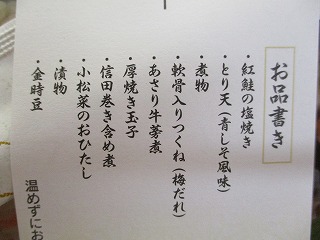 お品書き
・紅鮭の塩焼き
・とり天(青しそ風味)
・煮物
・軟骨入りつくね(梅だれ)
・あさり牛蒡煮
・厚焼き玉子
・信田巻き含め煮
・小松菜のおひたし
・漬物
・金時豆
温めずにお